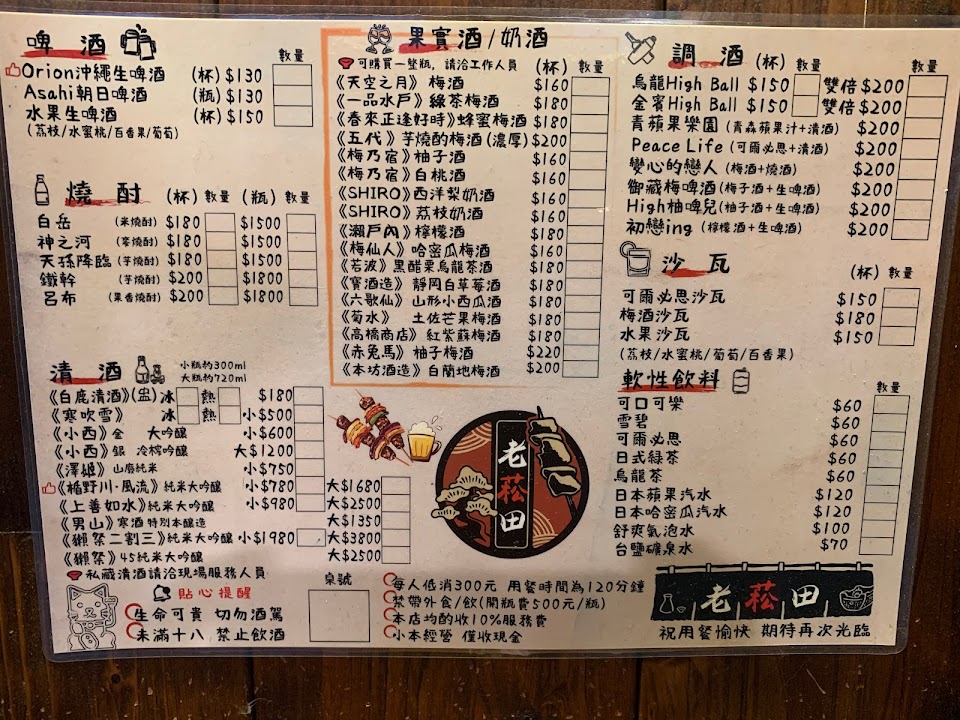 啤酒 數量
Orion沖繩生啤酒 (杯) $130
Asahi朝日啤酒 (瓶) $130
水果生啤酒 (杯) $150
(荔枝/水蜜桃/百香果/葡萄)
燒酎 (杯) 數量 (瓶) 數量
白岳 (米燒酎) $180 $1500
神之河 (麥燒酎) $180 $1500
天孫降臨 (芋燒酎) $180 $1500
鐵幹 (芋燒酎) $200 $1800
呂布 (果香燒酎) $200 $1800
清酒 小瓶約300ml
大瓶約720ml
《白鹿清酒》(盅) 冰 熱 $180
《寒吹雪》 冰 熱 小$500
《小西》金 大吟釀 小$600
《小西》銀 冷榨吟釀 大$1200
《澤姬》山廢純米 小$750
《楯野川·風流》純米大吟釀 小$780 大$1680
《上善如水》純米大吟釀 小$980 大$2500
《男山》寒酒 特別本釀造 大$1350
《獺祭二割三》純米大吟釀 小$1980 大$3800
《獺祭》45純米大吟釀 大$2500
私藏清酒請洽現場服務人員
貼心提醒
生命可貴 切勿酒駕
未滿十八 禁止飲酒
桌號
果實酒/奶酒
可購買一整瓶,請洽工作人員 (杯) 數量
《天空之月》梅酒 $160
《一品水戶》綠茶梅酒 $180
《春來正逢好時》蜂蜜梅酒 $180
《五代》芋燒酌梅酒(濃厚) $200
《梅乃宿》柚子酒 $160
《梅乃宿》白桃酒 $160
《SHIRO》西洋梨奶酒 $160
《SHIRO》荔枝奶酒 $160
《瀨戶內》檸檬酒 $180
《梅仙人》哈密瓜梅酒 $160
《若波》黑醋栗烏龍茶酒 $180
《寶酒造》靜岡白草莓酒 $180
《六歌仙》山形小西瓜酒 $180
《菊水》 土佐芒果梅酒 $180
《高橋商店》紅紫蘇梅酒 $180
《赤兔馬》柚子梅酒 $220
《本坊酒造》白蘭地梅酒 $200
老菘田
每人低消300元 用餐時間為120分鐘
禁帶外食/飲(開瓶費500元/瓶)
本店均酌收10%服務費
小本經營 僅收現金
調酒 (杯) 數量 數量
烏龍High Ball $150 雙倍 $200
金賓High Ball $150 雙倍 $200
青蘋果樂園 (青森蘋果汁+清酒) $200
Peace Life (可爾必思+清酒) $200
變心的戀人 (梅酒+燒酒) $200
御藏梅啤酒 (梅子酒+生啤酒) $200
High柚啤兒 (柚子酒+生啤酒) $200
初戀ing (檸檬酒+生啤酒) $200
沙瓦 (杯) 數量
可爾必思沙瓦 $150
梅酒沙瓦 $180
水果沙瓦 $150
(荔枝/水蜜桃/葡萄/百香果)
軟性飲料 數量
可口可樂 $60
雪碧 $60
可爾必思 $60
日式綠茶 $60
烏龍茶 $60
日本蘋果汽水 $120
日本哈密瓜汽水 $120
舒爽氣泡水 $100
台鹽礦泉水 $70
老菘田
祝用餐愉快 期待再次光臨